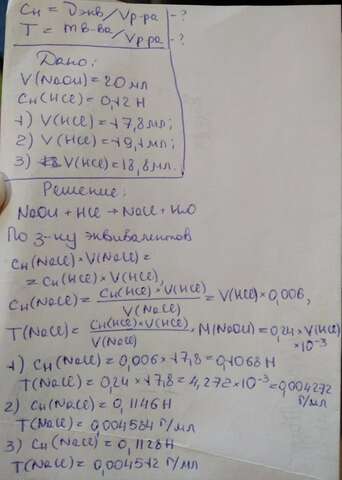 Cн = νэкв/Vр-ра - ?
T = mв-ва/Vр-ра - ?
Дано:
V(NaOH)=20мл
Cн(HCl)=0,12 Н
1) V(HCl)=17,8мл;
2) V(HCl)=19,1мл;
3) V(HCl)=18,8мл.
Решение:
NaOH + HCl → NaCl + H2O
По з-ку эквивалентов
Cн(NaCl)×V(NaCl)=
=Cн(HCl)×V(HCl),
Cн(NaCl)=Cн(HCl)×V(HCl)/V(NaCl)=V(HCl)×0,006,
T(NaCl)=Cн(HCl)×V(HCl)/V(NaCl)·M(NaOH)=0,24×V(HCl)
×10⁻³
1) Cн(NaCl)=0,006×17,8=0,1068Н
T(NaCl)=0,24×17,8=4,272×10⁻³=0,004272
г/мл
2) Cн(NaCl)=0,1146Н
T(NaCl)=0,004584 г/мл
3) Cн(NaCl)=0,1128Н
T(NaCl)=0,004512 г/мл